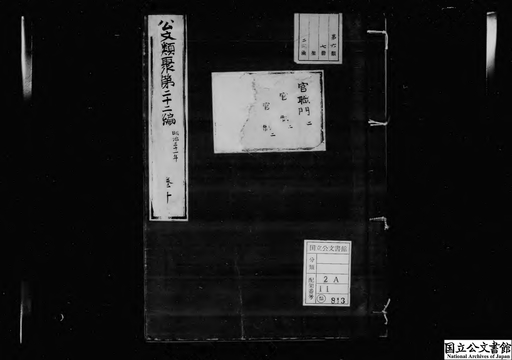 公文類聚第二十二編
明治三十一年
巻十
官職門二
官制二
国立公文書館
分類
配架番号
2A
11
813
国立公文書館
National Archives of Japan